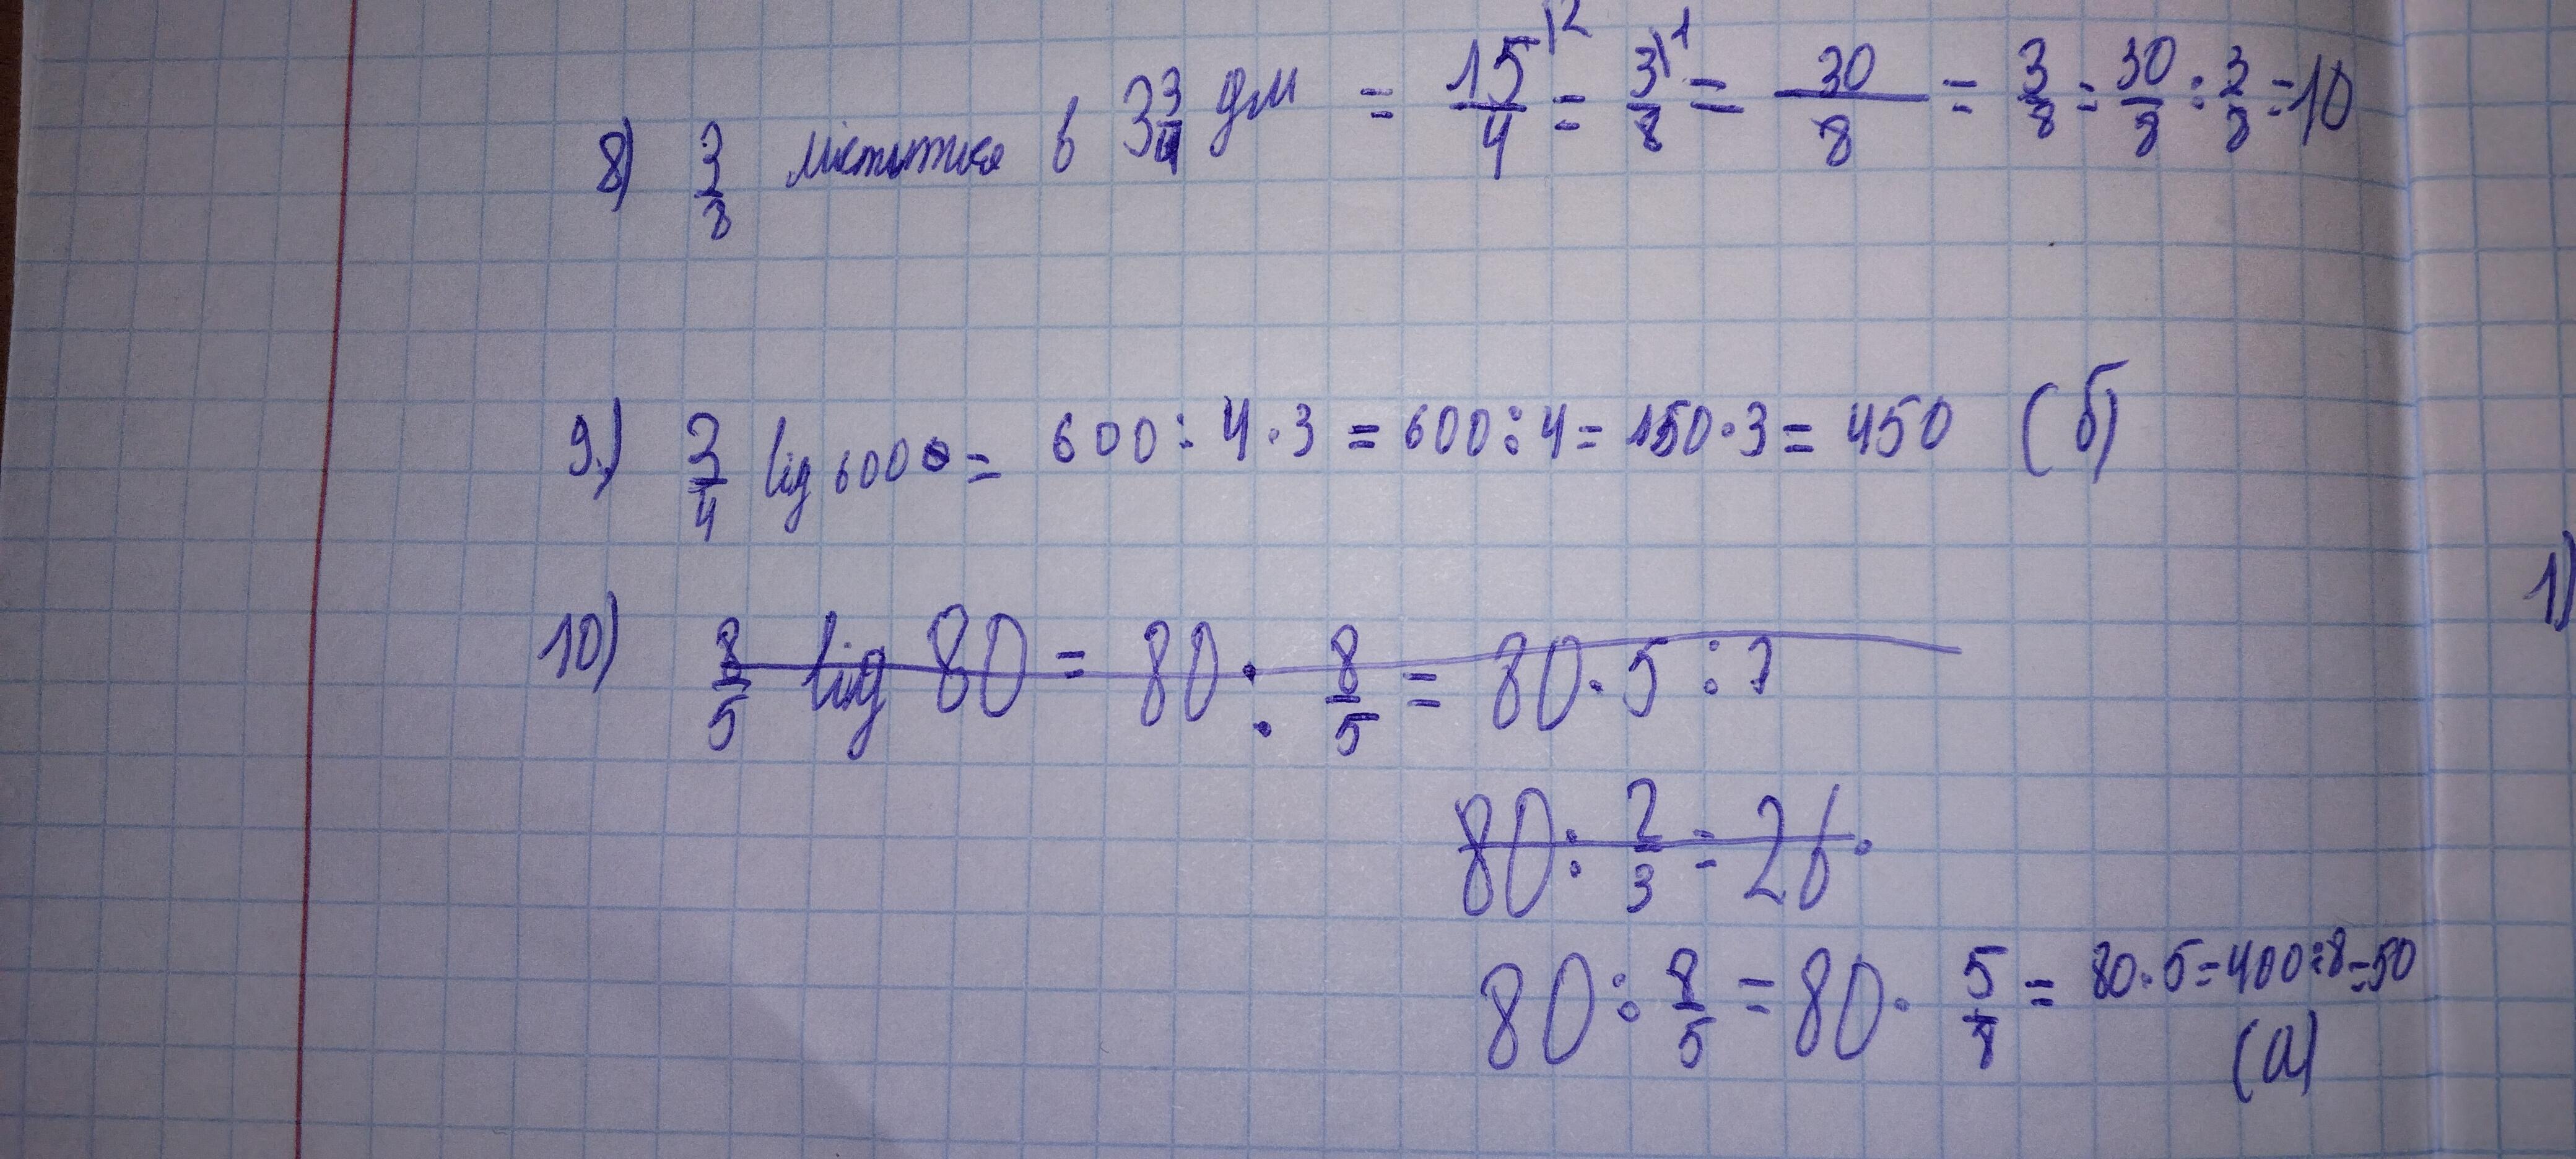 8) 3/8 міститься в 3 3/4 дм = 15/4 |2 = 3/8 |1 = 30/8 = 3/8 = 30/8 : 3/8 = 10
9.) 3/4 від 600 = 600 : 4 · 3 = 600 : 4 = 150 · 3 = 450 (б)
10) 8/5 від 80 = 80 : 8/5 = 80 · 5 : 
80 : 2/3 = 26.
80 : 8/5 = 80 · 5/8 = 80 · 5 = 400 : 8 = 50
(а)
1)